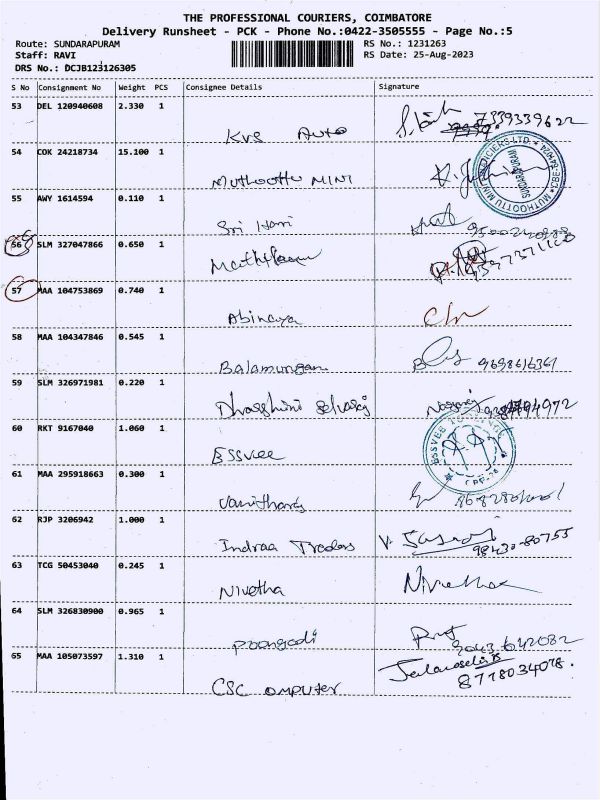 THE PROFESSIONAL COURIERS, COIMBATORE
Delivery Runsheet - PCK - Phone No.:0422-3505555 - Page No.:5
Route: SUNDARAPURAM RS No.: 1231263
Staff: RAVI RS Date: 25-Aug-2023
DRS No.: DCJB123126305
S No Consignment No Weight PCS Consignee Details Signature
53 DEL 120940608 2.330 1
KVS Auto 7339339622
54 COK 24218734 15.100 1
Muthoottu Mini
SUNDARAPURAM
55 AWY 1614594 0.110 1
Sri Hari
56 SLM 327047866 0.650 1
57 MAA 104753869 0.740 1
Abinaya
58 MAA 104347846 0.545 1
Balamurugan
59 SLM 326971981 0.220 1
Dharshini
60 RKT 9167040 1.060 1
Essvee
61 MAA 295918663 0.300 1
62 RJP 3206942 1.000 1
Indraa Traders 98430-80755
63 TCG 50453040 0.245 1
Nivetha Nivetha
64 SLM 326830900 0.965 1
Poongodi 9043642082
65 MAA 105073597 1.310 1
CSC omputer 8778034078.